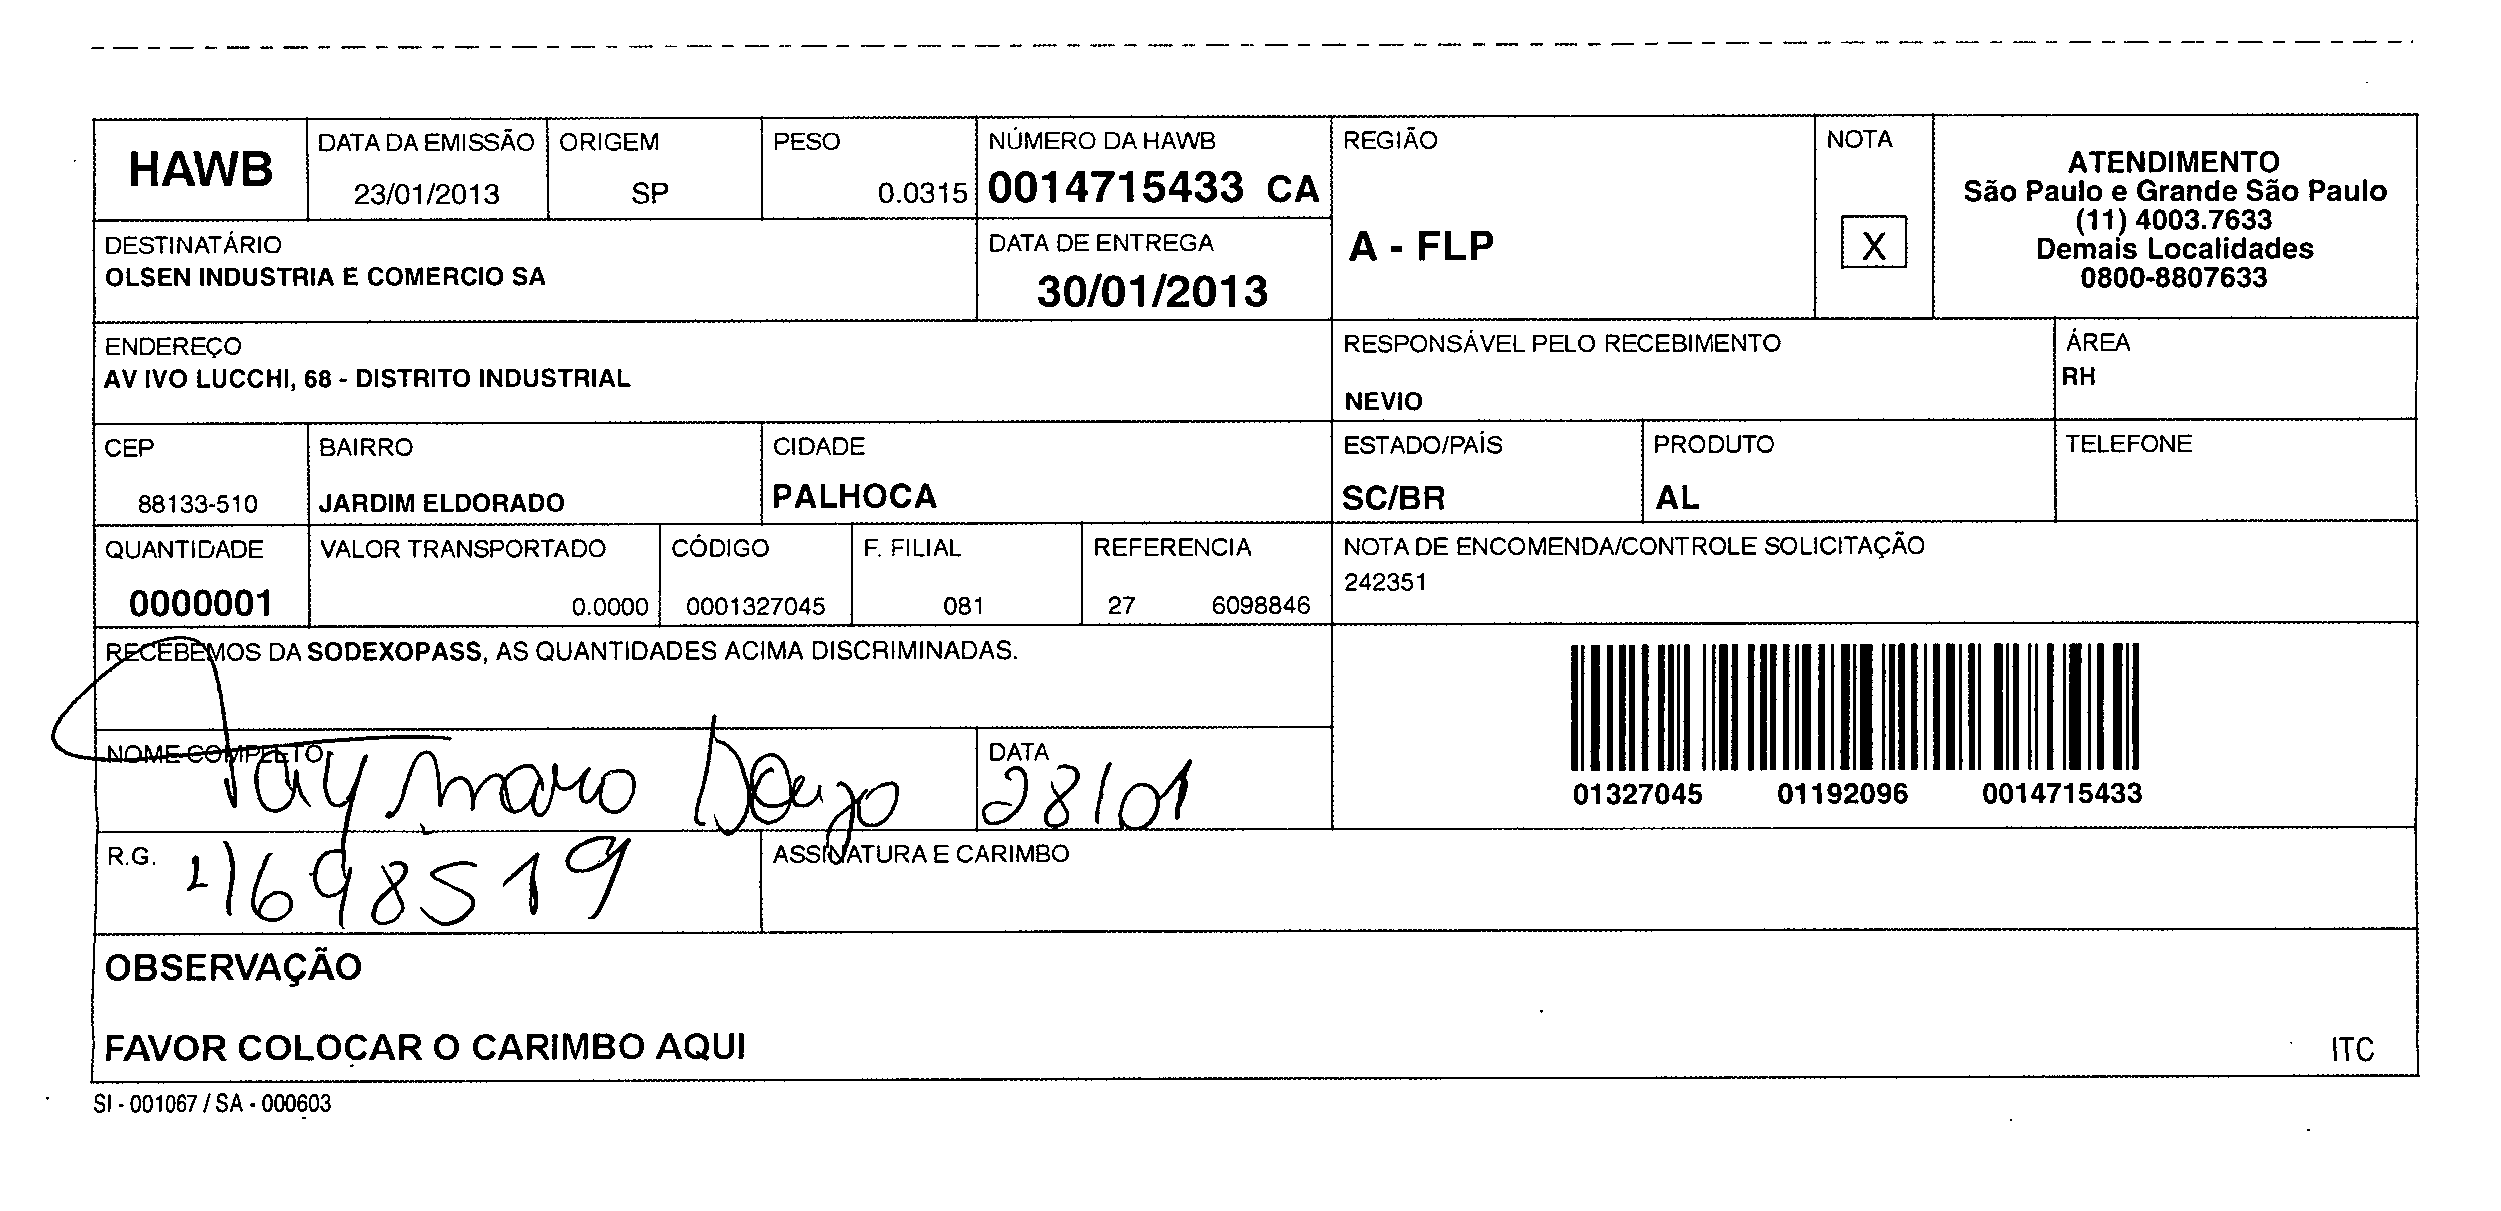 HAWB
DATA DA EMISSÃO
23/01/2013
ORIGEM
SP
PESO
0.0315
NÚMERO DA HAWB
0014715433 CA
REGIÃO
A - FLP
NOTA
X
ATENDIMENTO
São Paulo e Grande São Paulo
(11) 4003.7633
Demais Localidades
0800-8807633
DESTINATÁRIO
OLSEN INDUSTRIA E COMERCIO SA
DATA DE ENTREGA
30/01/2013
ENDEREÇO
AV IVO LUCCHI, 68 - DISTRITO INDUSTRIAL
RESPONSÁVEL PELO RECEBIMENTO
NEVIO
ÁREA
RH
CEP
88133-510
BAIRRO
JARDIM ELDORADO
CIDADE
PALHOCA
ESTADO/PAÍS
SC/BR
PRODUTO
AL
TELEFONE
QUANTIDADE
0000001
VALOR TRANSPORTADO
0.0000
CÓDIGO
0001327045
F. FILIAL
081
REFERENCIA
27 6098846
NOTA DE ENCOMENDA/CONTROLE SOLICITAÇÃO
242351
RECEBEMOS DA SODEXOPASS, AS QUANTIDADES ACIMA DISCRIMINADAS.
01327045 01192096 0014715433
NOME COMPLETO
DATA
28/01
R.G.
4698519
ASSINATURA E CARIMBO
OBSERVAÇÃO
FAVOR COLOCAR O CARIMBO AQUI
ITC
SI - 001067 / SA - 000603